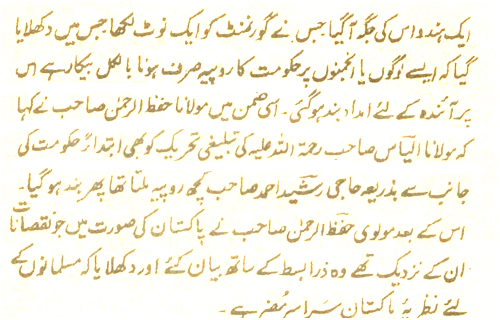 ایک ہندو اس کی جگہ آ گیا جس نے گورنمنٹ کو ایک نوٹ لکھا جس میں دکھلایا
گیا کہ ایسے لوگوں یا انجمنوں پر حکومت کا روپیہ صرف ہونا بالکل بیکار ہے اس
پر آئندہ کے لئے امداد بند ہو گئی۔ اسی ضمن میں مولانا حفظ الرحمٰن صاحب نے کہا
کہ مولانا الیاس صاحب رحمۃ اللہ علیہ کی تبلیغی تحریک کو بھی ابتداءً حکومت کی
جانب سے بذریعہ حاجی رشید احمد صاحب کچھ روپیہ ملتا تھا پھر بند ہو گیا۔
اس کے بعد مولوی حفظ الرحمٰن صاحب نے پاکستان کی صورت میں جو نقصانات
ان کے نزدیک تھے وہ ذرا بسط کے ساتھ بیان کئے اور دکھلایا کہ مسلمانوں کے
لئے نظریۂ پاکستان سراسر مُضر ہے۔